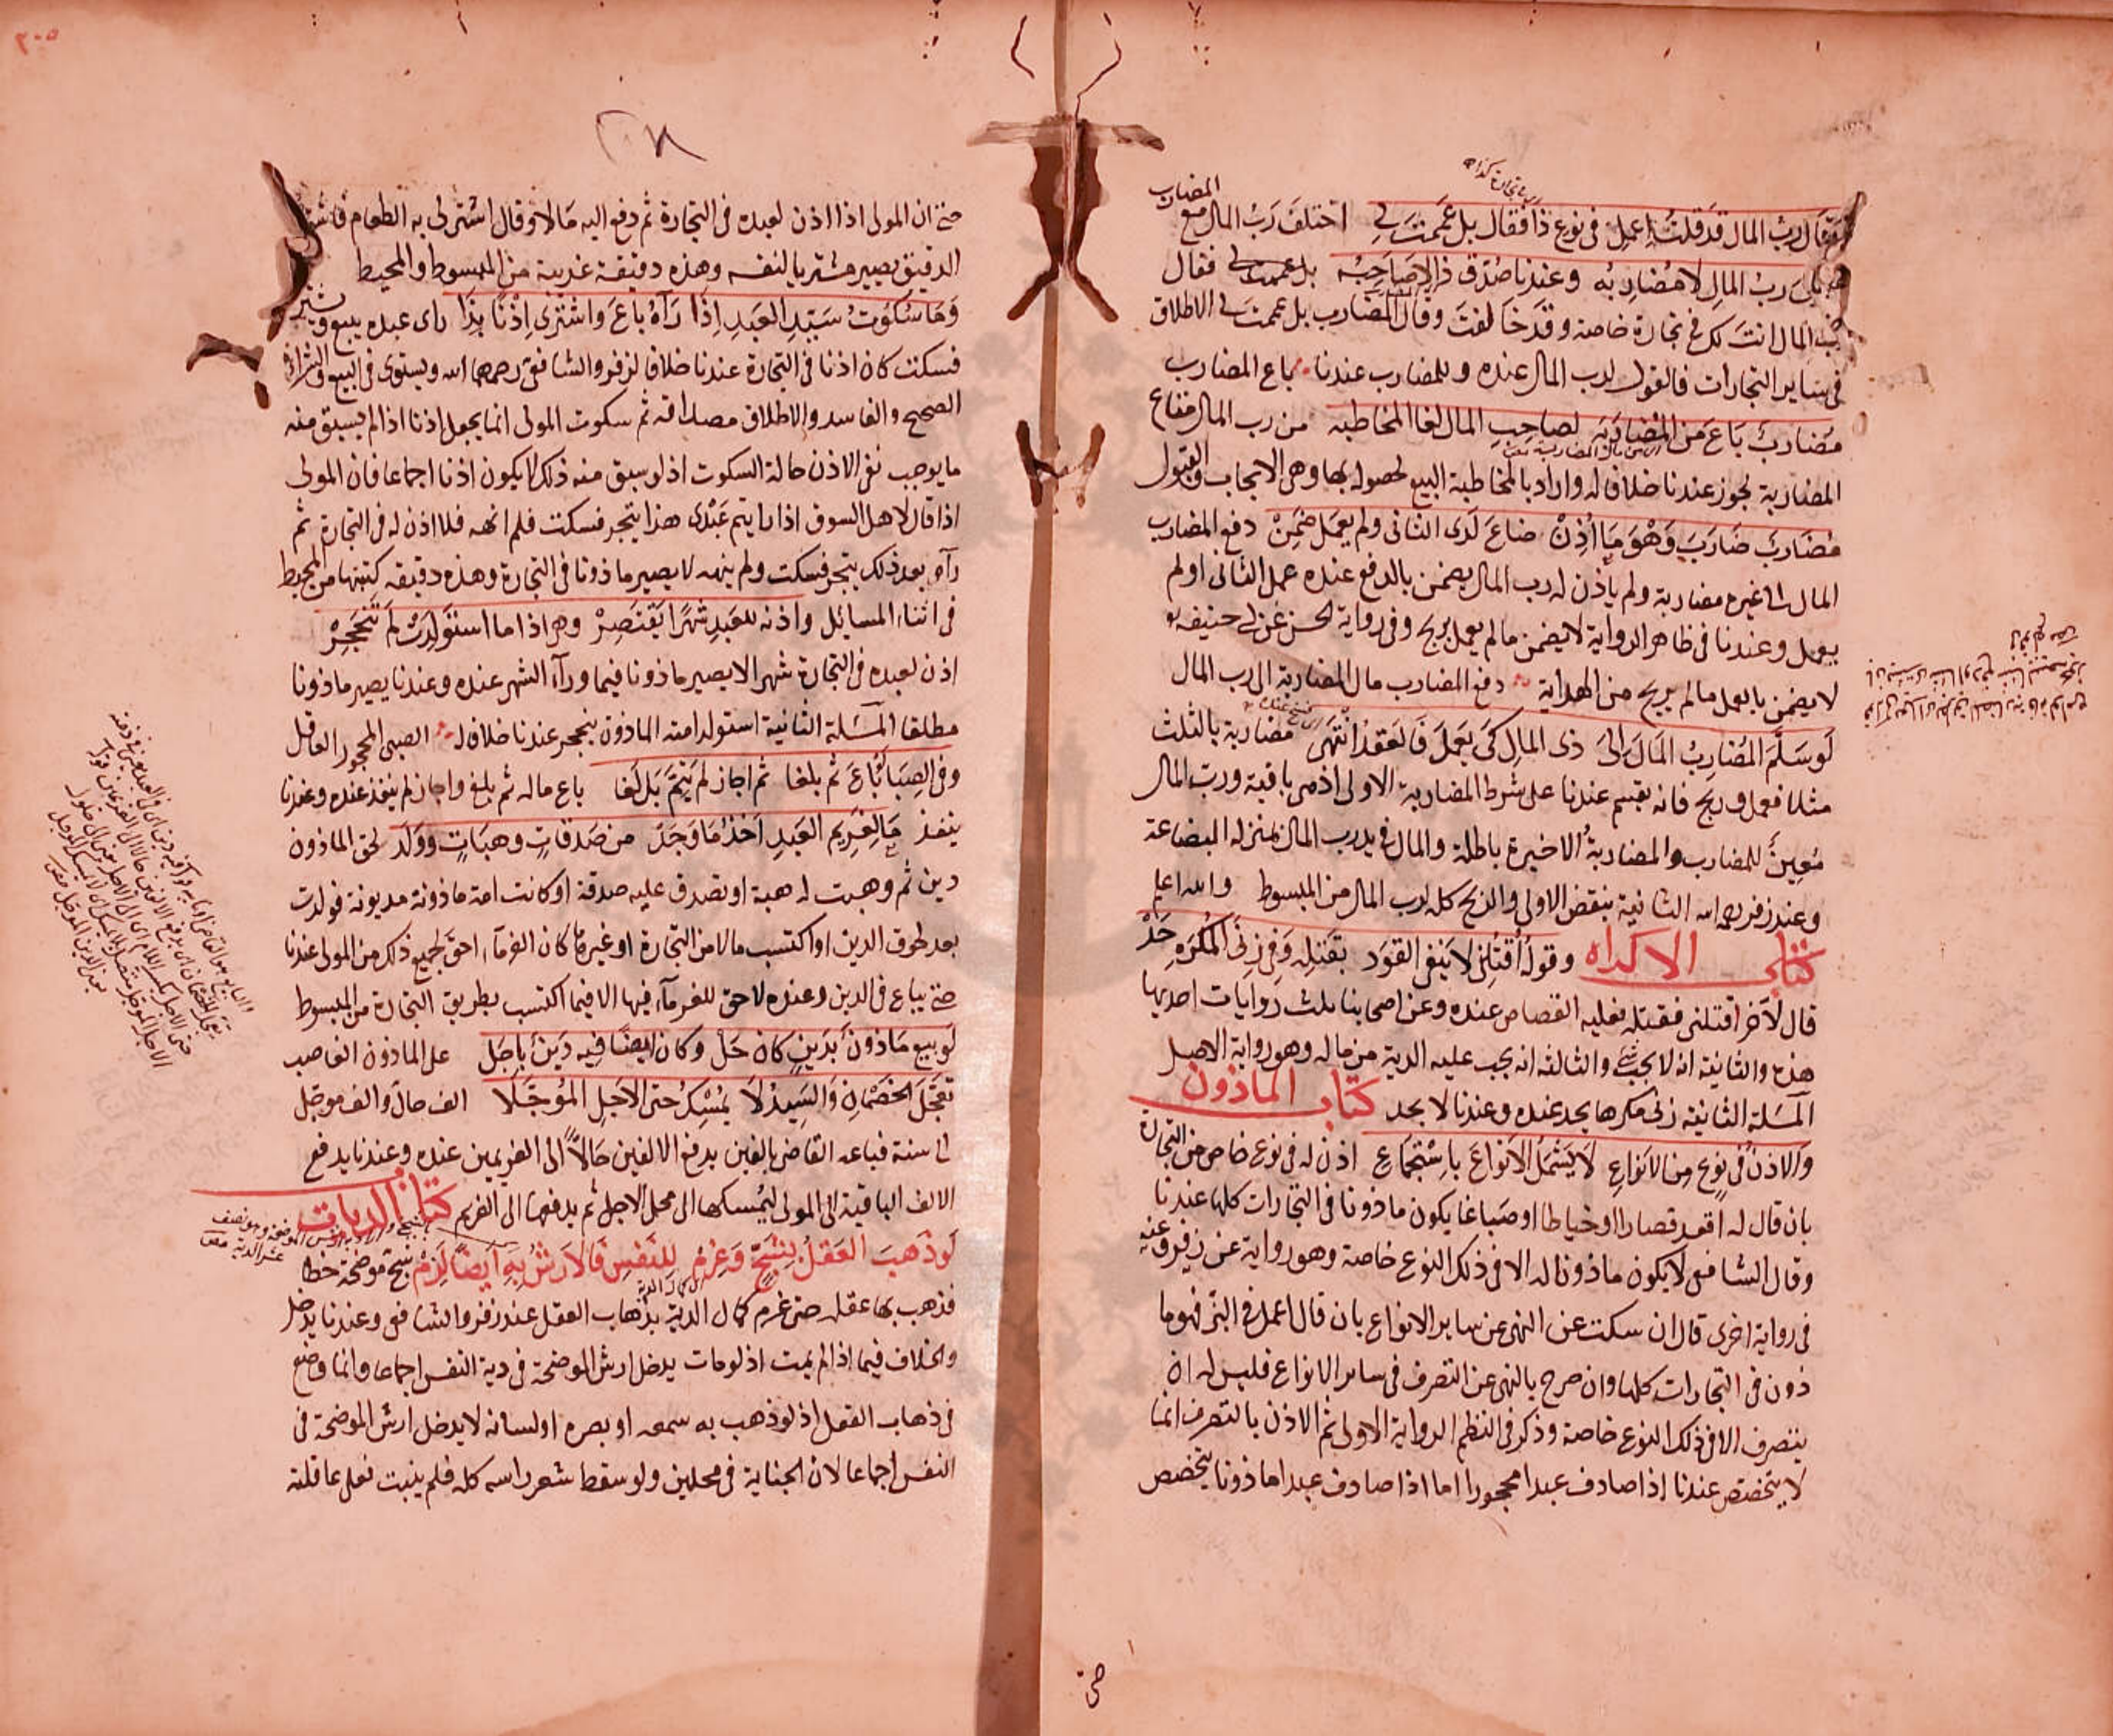 وقال رب المال قد قلت اعمل في نوع ذا فقال بل عممت لي اختلف رب المال مع المضارب
رب المال لا مضاربه وعندنا صدق ذا لا صاحبه بل عممت لي فقال
رب المال اذنت لك في تجارة خاصة وقد خالفت وقال المضارب بل عممت لي الاطلاق
في ساير التجارات فالقول لرب المال عنده وللمضارب عندنا باع المضارب
مضارب باع من المضاربه لصاحب المال لغا المخاطبه من رب المال متاع
المضاربة يجوز عندنا خلافا له واراد بالمخاطبة البيع لحصوله بها وهي الايجاب والقبول
مضارب ضارب وهو ما اذن ضاع لدى الثاني ولم يعمل ضمن دفع المضارب
المال الى غيره مضاربة ولم ياذن له رب المال يضمن بالدفع عنده عمل الثاني اولم
يعمل وعندنا في ظاهر الرواية لا يضمن ما لم يعمل يربح وفي رواية الحسن عن ابي حنيفة
لا يضمن بالعمل ما لم يربح من الهداية دفع المضارب مال المضاربة الى رب المال
لو سلم المضارب المال الى ذي المال كي يعمل فالعقد انتهى مضاربة بالثلث
مثلا فعمل وربح فانه يقسم عندنا على شرط المضاربة الاولى اذ هي باقية ورب المال
معين للمضارب والمضاربة الاخيرة باطلة والمال في يد رب المال بمنزلة البضاعة
وعند زفر رحمه الله الثانية ينقض الاولى والربح كله لرب المال من المبسوط والله اعلم
كتاب الاكراه وقوله اقتلني لا ينفي القود بقتله وفي زنى المكره حد
قال لآخر اقتلني فقتله فعليه القصاص عنده وعن اصحابنا ثلث روايات احديها
هذه والثانية انه لا يجب شئ والثالثة انه يجب عليه الدية من ماله وهو رواية الاصل
المسئلة الثانية زنى مكرها يحد عنده وعندنا لا يحد كتاب الماذون
والاذن في نوع من الانواع لا يشمل الانواع باستجماع اذن له في نوع خاص من التجارة
بان قال له اقعد قصارا او خياطا او صباغا يكون ماذونا في التجارات كلها عندنا
وقال الشافعي لا يكون ماذونا له الا في ذلك النوع خاصة وهو رواية عن زفر وعنه
في رواية اخرى قال ان سكت عن النهي عن ساير الانواع بان قال اعمل في البز فهو ما
ذون في التجارات كلها وان صرح بالنهي عن التصرف في ساير الانواع فليس له ان
يتصرف الا في ذلك النوع خاصة وذكر في النظم الرواية الاولى ثم الاذن بالتصرف انما
لا يتخصص عندنا اذا صادف عبدا محجورا اما اذا صادف عبدا ماذونا يتخصص
حتى
٢٠٥
حتى ان المولى اذا اذن لعبده في التجارة ثم دفع اليه مالا وقال اشتر لي به الطعام فاشترى
الدقيق يصير مشتريا لنفسه وهذه دقيقة غريبة من المبسوط والمحيط
وما سكوت سيد العبد اذا رآه باع واشترى اذنا بذا راى عبده يبيع ويشتري
فسكت كان اذنا في التجارة عندنا خلافا لزفر والشافعي رحمهما الله ويستوي في البيع والشراء
الصحيح والفاسد والاطلاق مصداقه ثم سكوت المولى انما يجعل اذنا اذا لم يسبق منه
ما يوجب نفي الاذن حالة السكوت اذ لو سبق منه ذلك لا يكون اذنا اجماعا فان المولى
اذا قال لاهل السوق اذا رايتم عبدي هذا يتجر فسكت فلم انهه فلا اذن له في التجارة ثم
رآه بعد ذلك يتجر فسكت ولم ينهه لا يصير ماذونا في التجارة وهذه دقيقه كتبتها من المحيط
في اثناء المسائل واذنه للعبد شهرا يقتصر وهو اذا ما استولدت لم تنحجر
اذن لعبده في التجارة شهرا لا يصير ماذونا فيما ورآء الشهر عنده وعندنا يصير ماذونا
مطلقا المسئلة الثانية استولد امته الماذون ينحجر عندنا خلافا له الصبي المحجور العاقل
وفي الصبا لو باع ثم بلغا ثم اجاز لم يتم بل لغا باع ماله ثم بلغ واجاز لم ينفذ عنده وعندنا
ينفذ ما لغريم العبد اخذ ما وجد من صدقات وهبات وولد لحق الماذون
دين ثم وهبت له هبة او تصدق عليه صدقة او كانت امة ماذونة مديونة فولدت
بعد لحوق الدين او اكتسب مالا من التجارة او غيرها كان الغرمآء احق بجميع ذلك من المولى عندنا
حتى يباع في الدين وعنده لا حق للغرمآء فيها الا فيما اكتسب بطريق التجارة من المبسوط
لو بيع ماذون بدين كان حل وكان ايضا فيه دين باجل على الماذون الغاصب
تعجل الخصمان والسيد لا يمسكه حتى الاجل المؤجلا الف حال والف مؤجل
الى سنة فباعه القاضي بالفين يدفع الالفين حالا الى الغريمين عنده وعندنا يدفع
الالف الباقية الى المولى ليمسكها الى محل الاجل ثم يدفعها الى الغريم كتاب الديات
لو ذهب العقل بشج وغرم للنفس فالارش به ايضا لزم شج موضحة خطا
فذهب بها عقله حتى غرم كمال الدية بذهاب العقل عند زفر والشافعي وعندنا يدخل
والخلاف فيما اذا لم يمت اذ لو مات يدخل ارش الموضحة في دية النفس اجماعا وانما وضع
في ذهاب العقل اذ لو ذهب به سمعه او بصره او لسانه لا يدخل ارش الموضحة في
النفس اجماعا لان الجناية في محلين ولو سقط شعر راسه كله فلم ينبت فعلى عاقلته